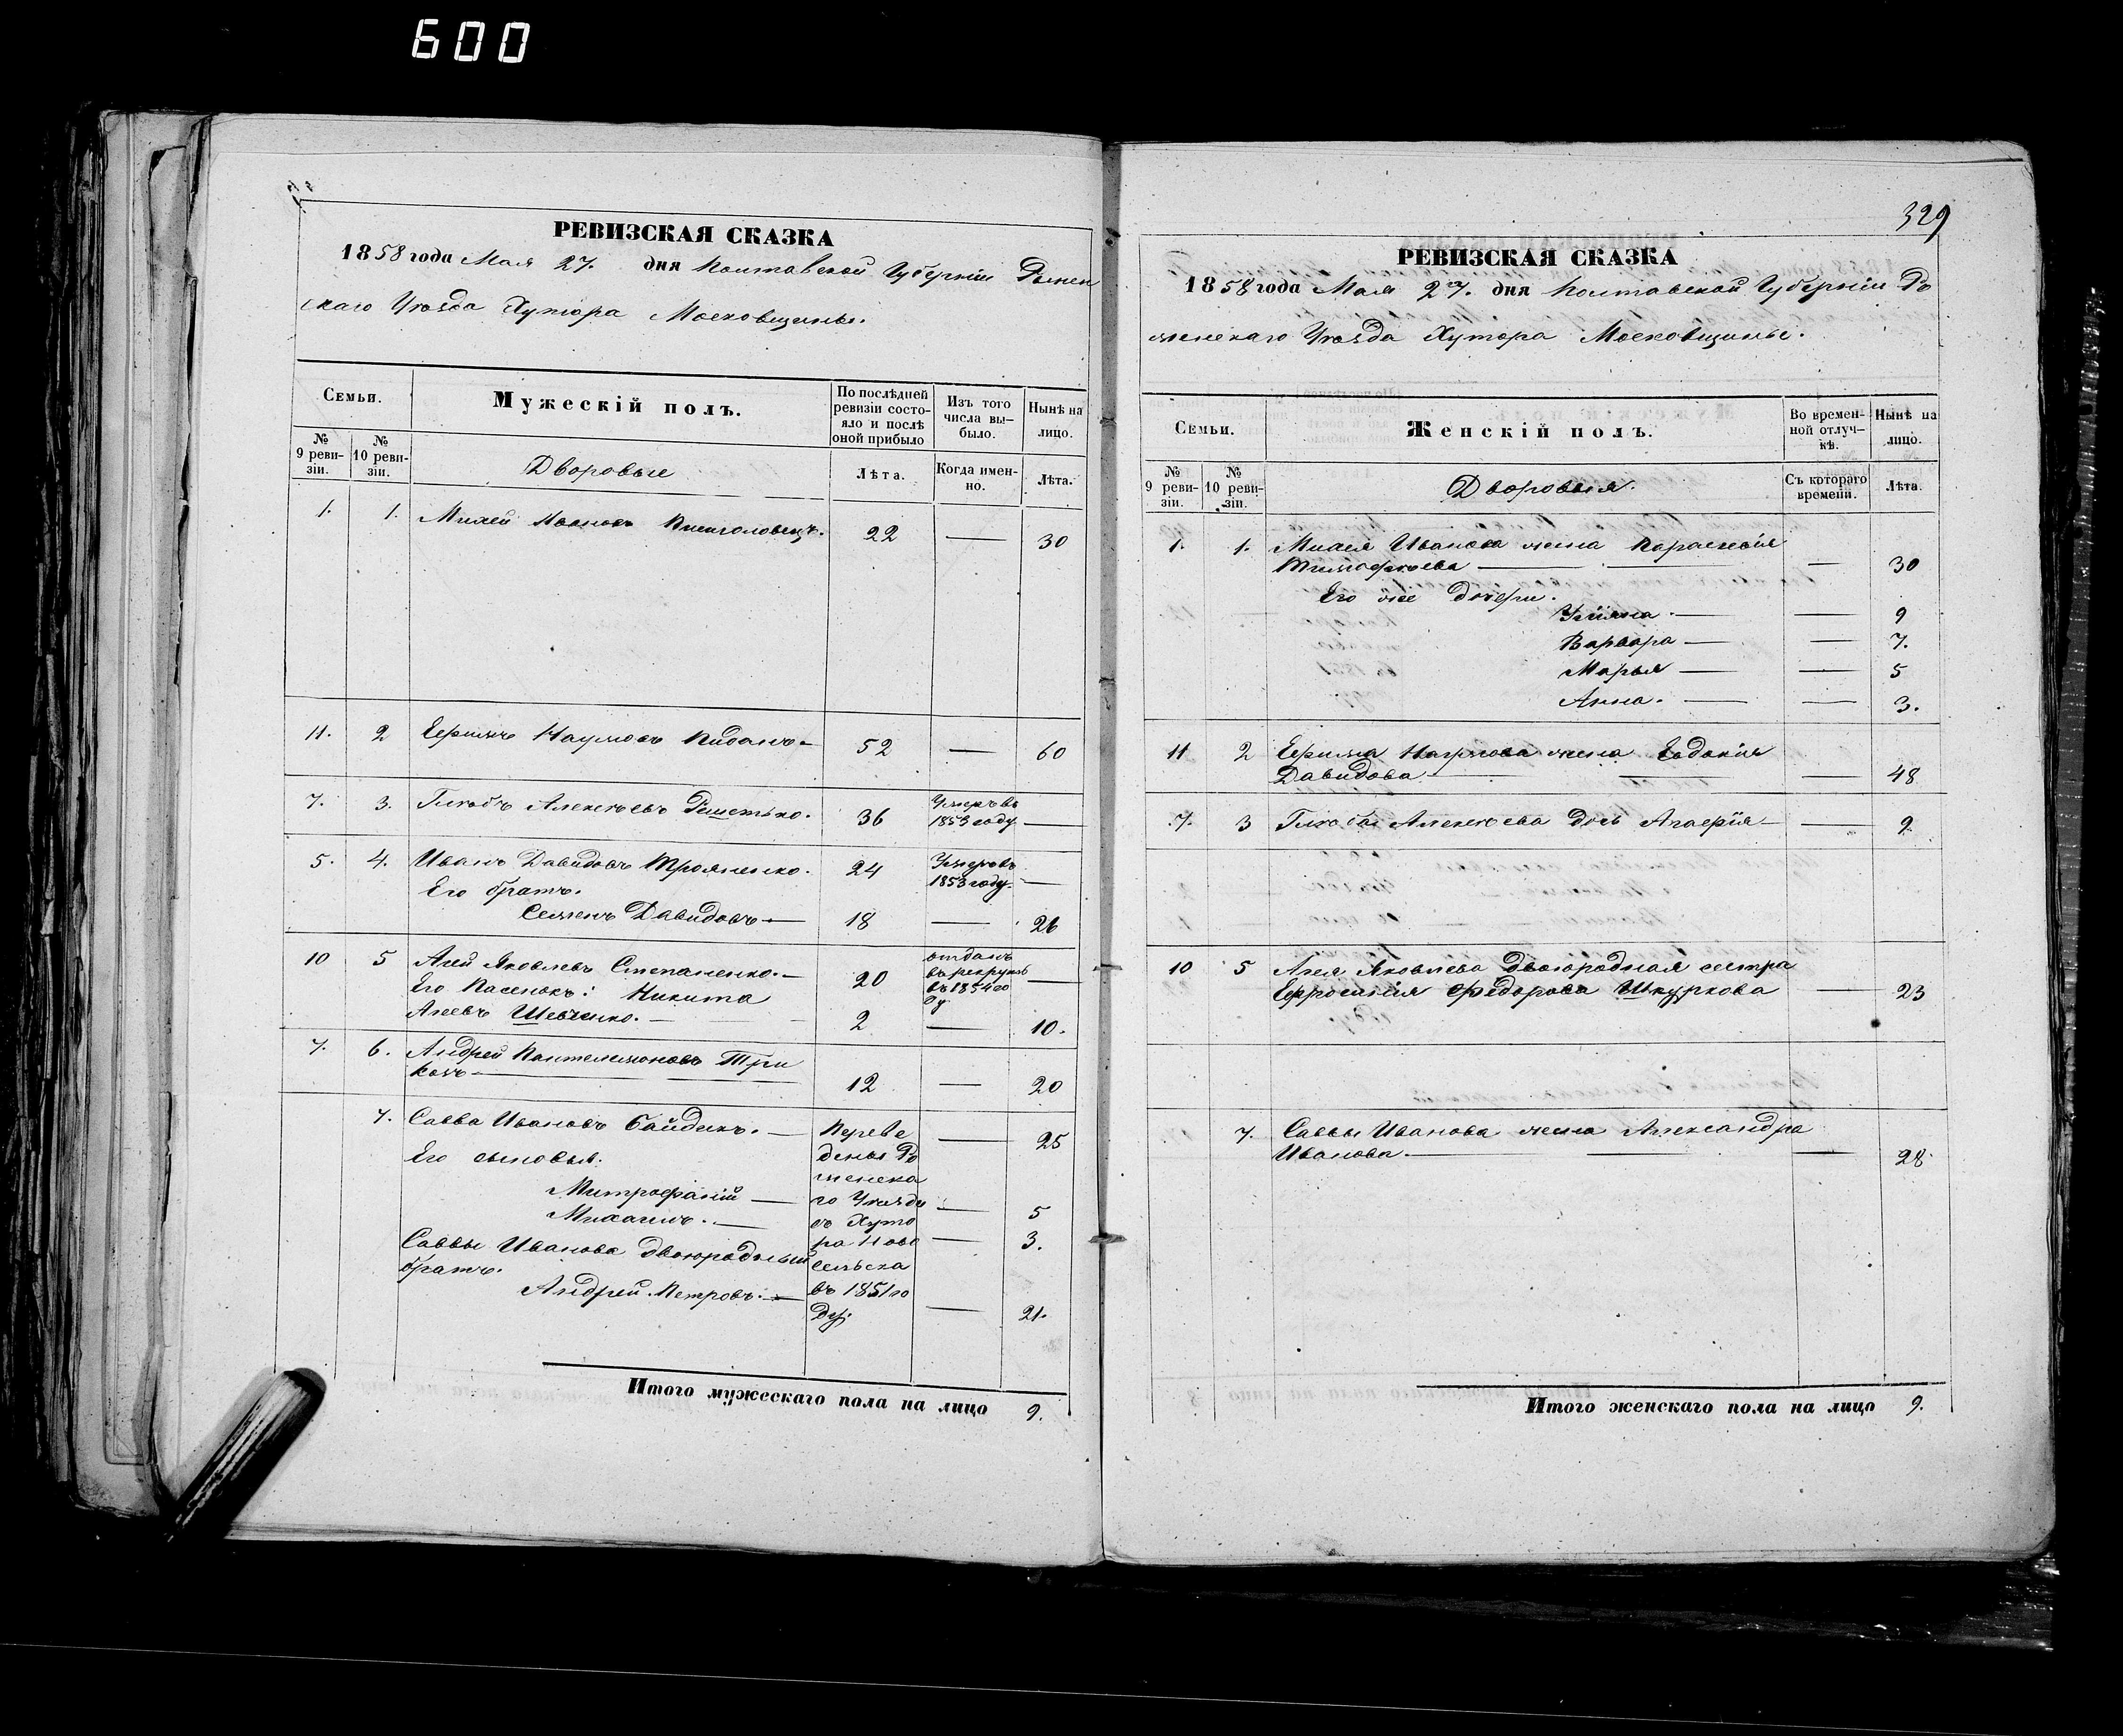 600
РЕВИЗСКАЯ СКАЗКА
1858 года Мая 27. дня Полтавской Губерніи Ромен
скаго Уѣзда Хутора Московщины.
Семьи.
Мужескій полъ.
По послѣдней ревизіи состо- яло и послѣ оной прибыло
Изъ того числа вы- было.
Нынѣ на лицо.
№ 9 реви- зіи.
№ 10 реви- зіи.
Дворовые
Лѣта.
Когда имен- но.
Лѣта.
1. 1. Михей Ивановъ 22 — 30
11. 2 Ефимъ Наумовъ Кибаль- 52 — 60
7. 3. Глѣбъ Алексѣевъ Решетько. 36 Умеръ въ 1853 году —
5. 4. Иванъ Давидовъ Трояненко. 24 Умеръ въ 1853 году. —
Его братъ.
Семенъ Давидовъ — 18 — 26
10 5 Агей Яковлевъ Степаненко. — 20 отданъ въ рекруты въ 1854 го ду —
Его Пасенокъ: Никита
Агеевъ Шевченко. — 2 — 10.
7. 6. Андрей Пантелемоновъ Три
12 — 20
7. Савва Ивановъ Байдикъ. — — 25
Его сыновья.
Митрофаній — — 5
Михаилъ. — — 3.
Саввы Иванова двоюродный
братъ.
Андрей Петровъ. — — 21.
Переве
дены Ро
менска
го Уѣзда
съ Хуто
ра Ново
сельска
въ 1851 го
ду.
Итого мужескаго пола на лицо 9.
329
РЕВИЗСКАЯ СКАЗКА
1858 года Мая 27. дня Полтавской Губерніи Ро
менскаго Уѣзда Хутора Московщины.
Семьи.
Женскій полъ.
Во времен- ной отлуч- кѣ.
Нынѣ на лицо.
№ 9 реви- зіи.
№ 10 реви- зіи.
Дворовыя.
Съ котораго времени.
Лѣта.
1. 1. Михея Иванова жена Параскевія
Тимофѣева — — 30
Его же дочери.
Уліяна. — — 9
Варвара — — 7.
Марья — — 5
Анна. — — 3.
11 2 Ефима Наумова жена Евдокія
Давидова — — 48
7. 3 Глѣба Алексѣева дочь Агафія — — 9
10 5 Агея Яковлева двоюродная сестра
Ефросинія Федорова Шкуркова — 23
7. Саввы Иванова жена Александра
Иванова. — — 28
Итого женскаго пола на лицо 9.